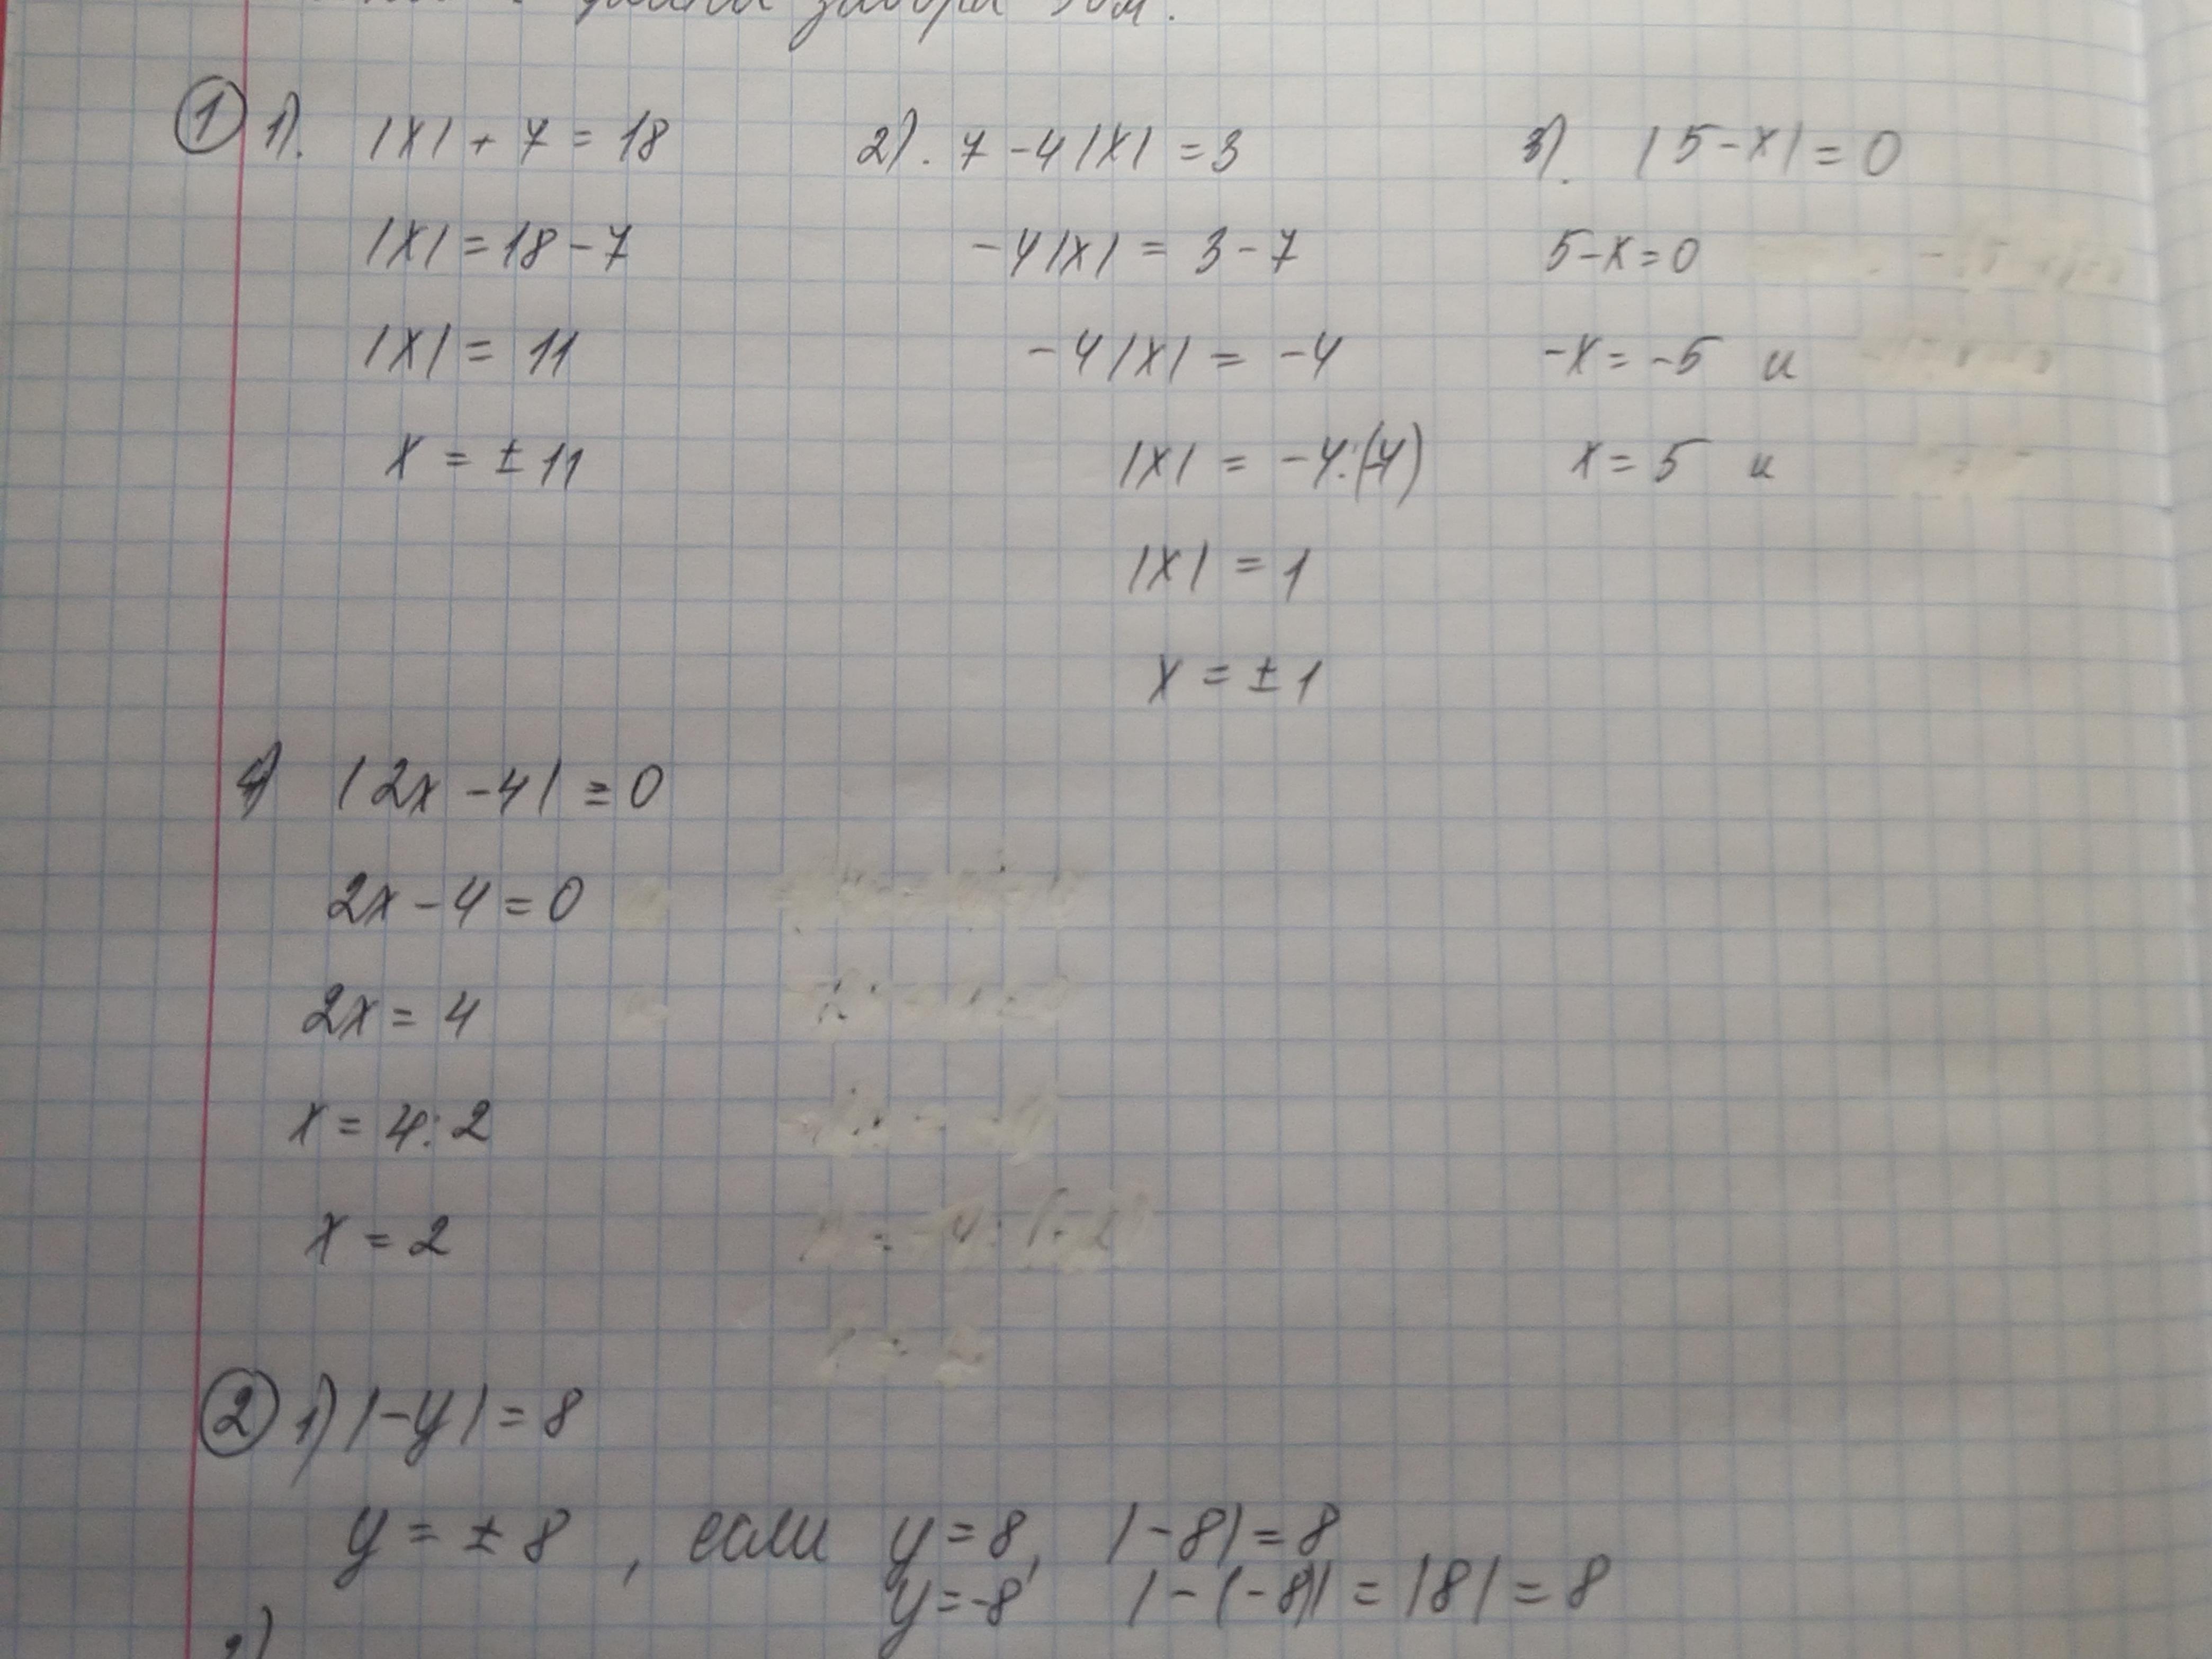 забора 30м.
① 1). |x| + 7 = 18
|x| = 18 - 7
|x| = 11
x = ± 11
2). 7 - 4|x| = 3
-4|x| = 3 - 7
-4|x| = -4
|x| = -4:(-4)
|x| = 1
x = ± 1
3). |5 - x| = 0
5 - x = 0
-x = -5 и
x = 5 и
4) |2x - 4| = 0
2x - 4 = 0
2x = 4
x = 4:2
x = 2
② 1) |-y| = 8
y = ± 8 , если y = 8, |-8| = 8
y = -8 |-(-8)| = |8| = 8
2)